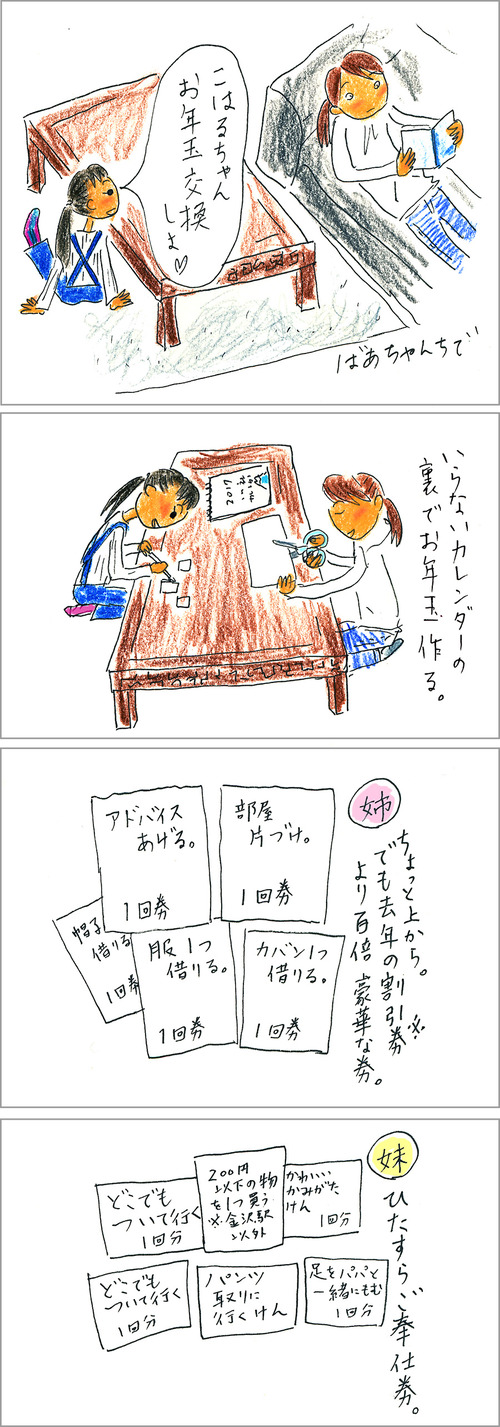 こはるちゃん
お年玉交換
しよ♡
ばあちゃんちで
いらないカレンダーの
裏でお年玉作る。
2017
姉
ちょっと上から。
でも去年の割引券※
より百倍豪華な券。
アドバイス
あげる。
1回券
部屋
片づけ。
1回券
帽子
借りる
1回券
服1つ
借りる。
1回券
カバン1つ
借りる。
1回券
妹
ひたすらご奉仕券。
どこでも
ついて行く
1回分
200円
以下の物
を1つ買う
※金沢駅
以外
かわいい
かみがた
けん
1回分
どこでも
ついて行く
1回分
パンツ
取りに
行くけん
足をパパと
一緒にもむ
1回分